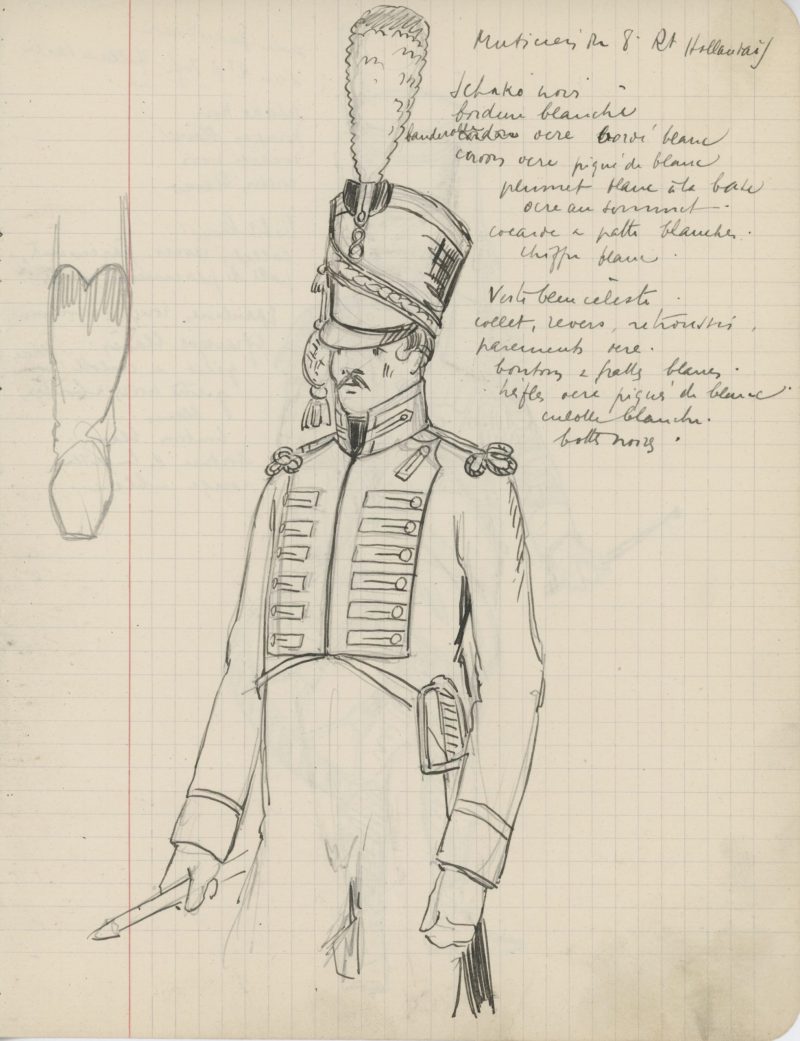 Musicien du 8e Rt Hollandais
Schako noir
bordure blanche
banderolle ocre bordé blanc
cordons ocre piqué de blanc
plumet blanc à la base
ocre au sommet.
cocarde & patte blanches.
chiffre blanc.
Veste bleu céleste.
collet, revers, retroussis,
parements ocre.
boutons & pattes blancs.
trèfles ocre piqués de blanc
culotte blanche.
bottes noires.